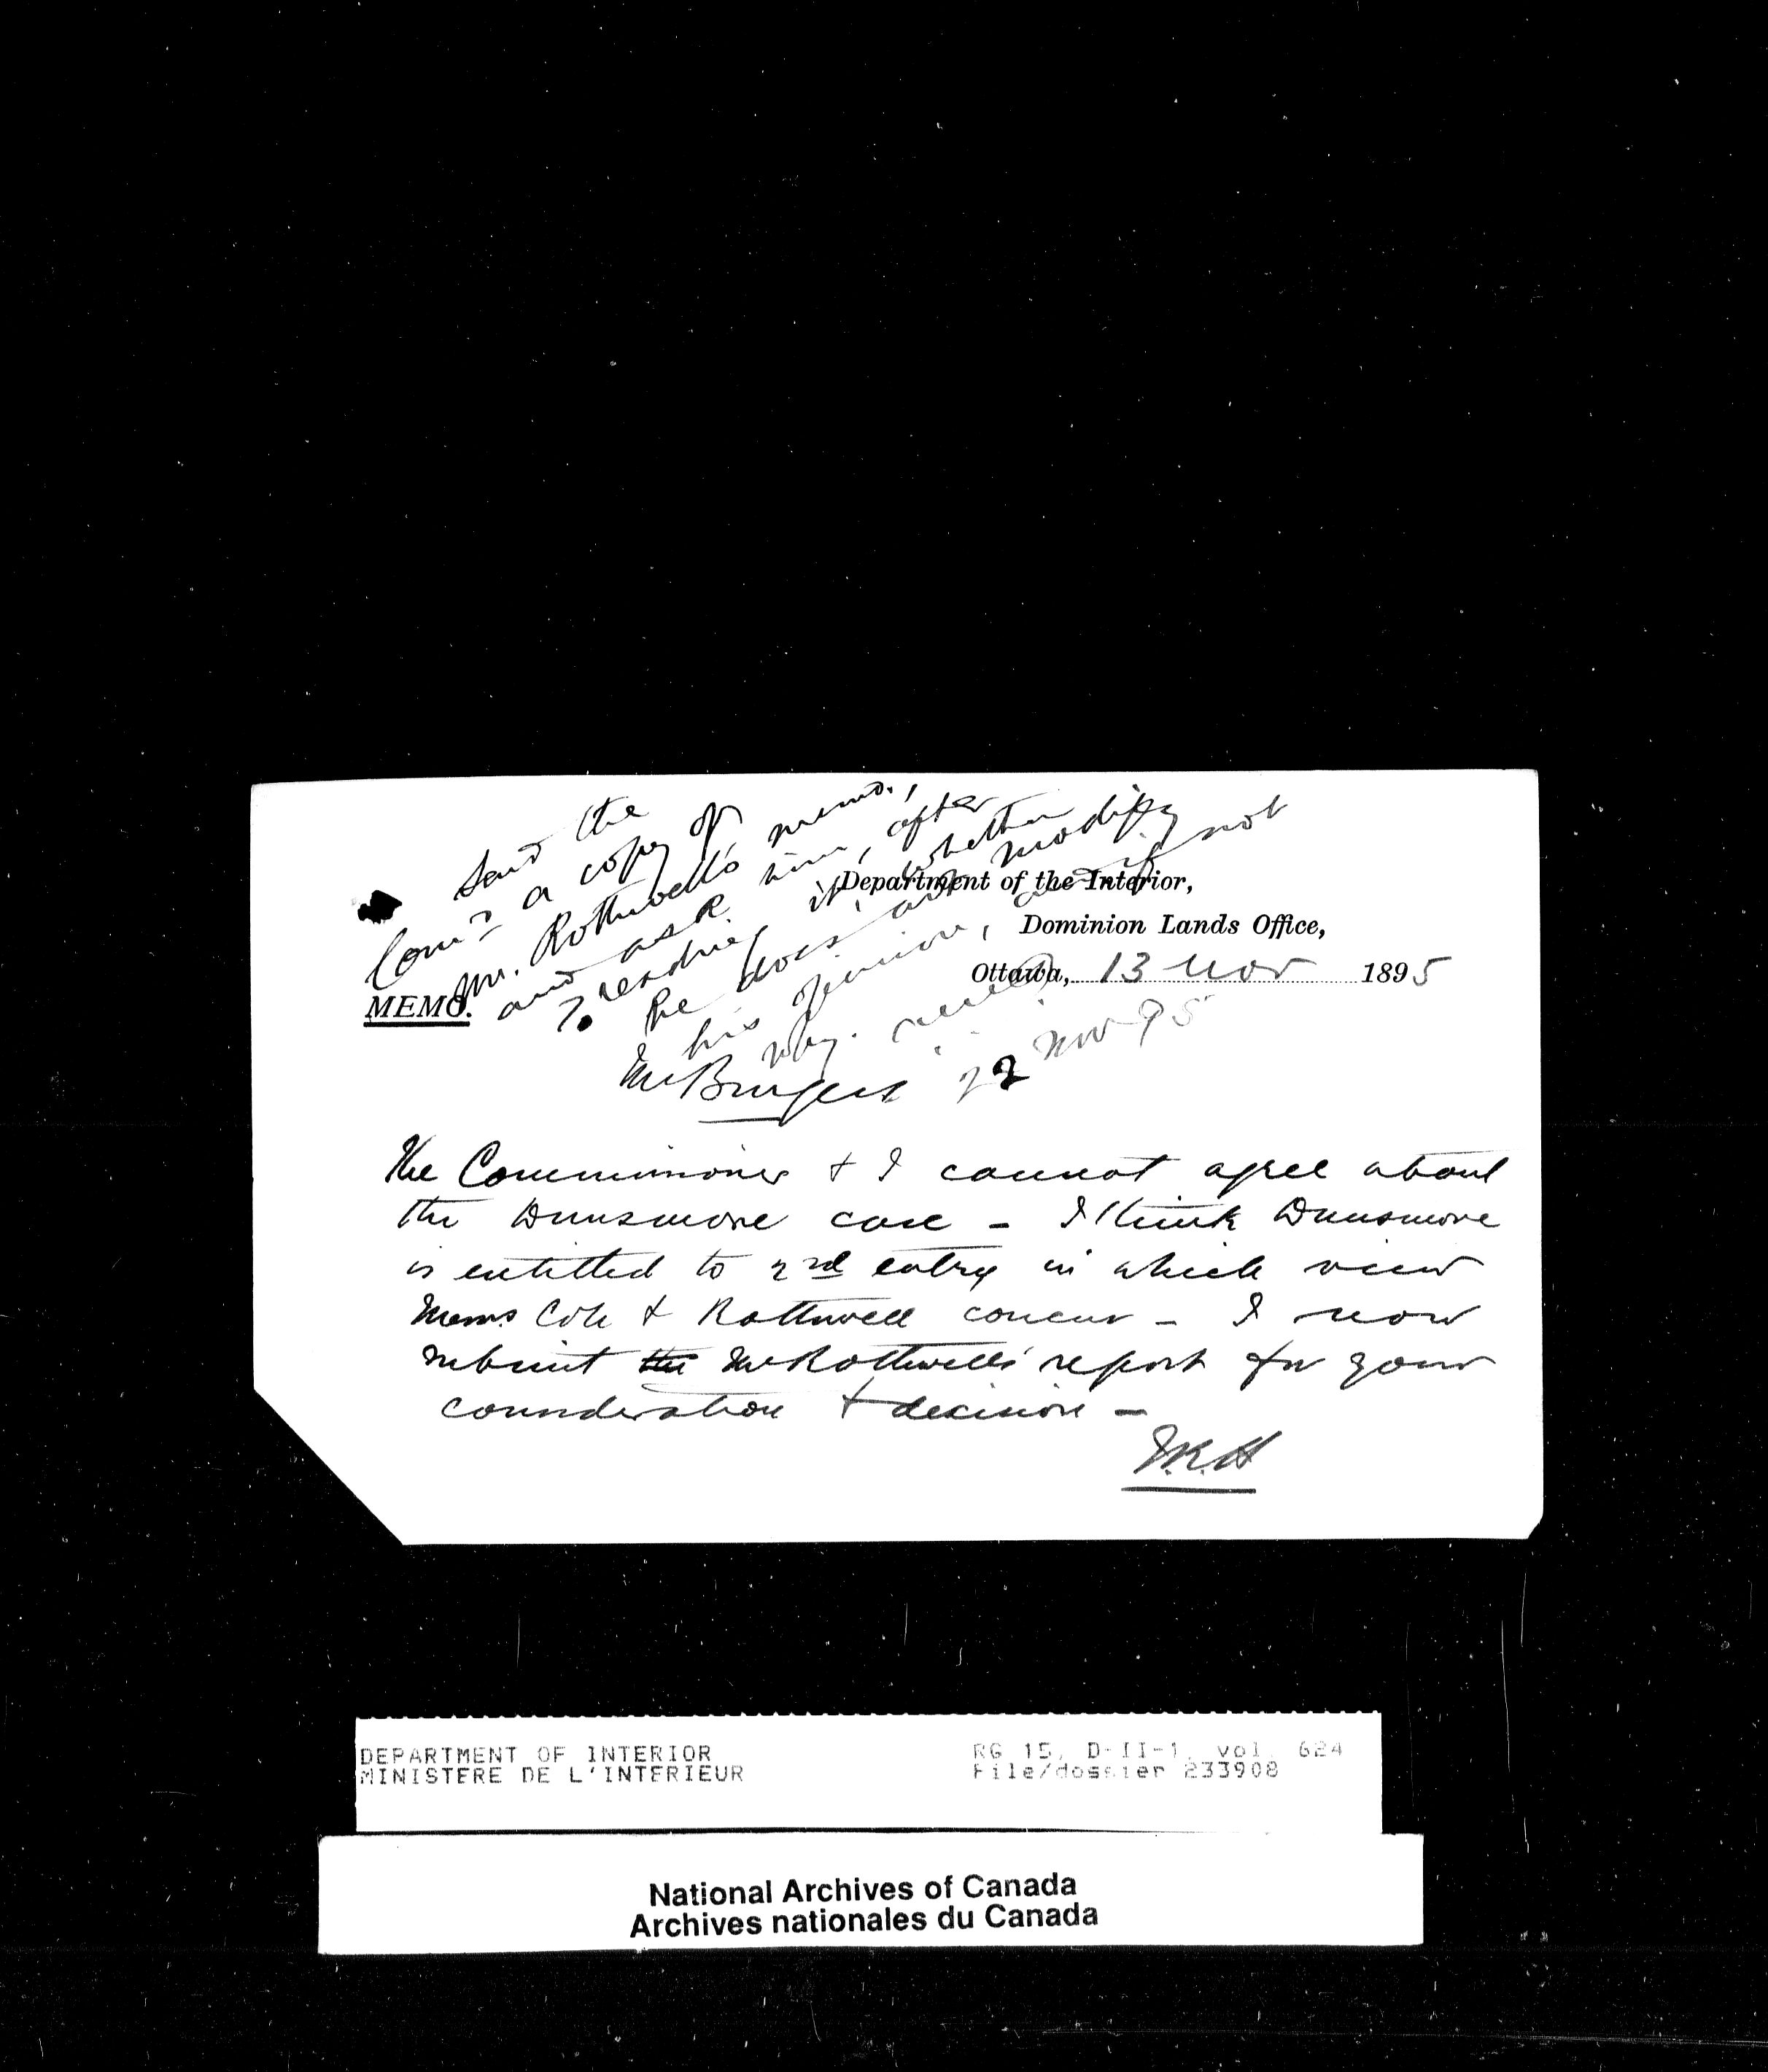 Send the
Comr a copy of
Mr. Rothwell's memo.,
and ask him, after
reading it, whether
he does not modify
his opinion, and if not
why.
22 Nov 95
Department of the Interior,
Dominion Lands Office,
Ottawa, 13 Nov 1895
MEMO.
Mr Burgess
The Commissioner & I cannot agree about
the Dunsmore case - I think Dunsmore
is entitled to 2nd entry in which view
Messrs Cole & Rothwell concur - I now
submit the Mr Rothwell's report for your
consideration & decision -
DEPARTMENT OF INTERIOR
MINISTERE DE L'INTERIEUR
RG 15, D-II-1, vol. 624
File/dossier 233908
National Archives of Canada
Archives nationales du Canada